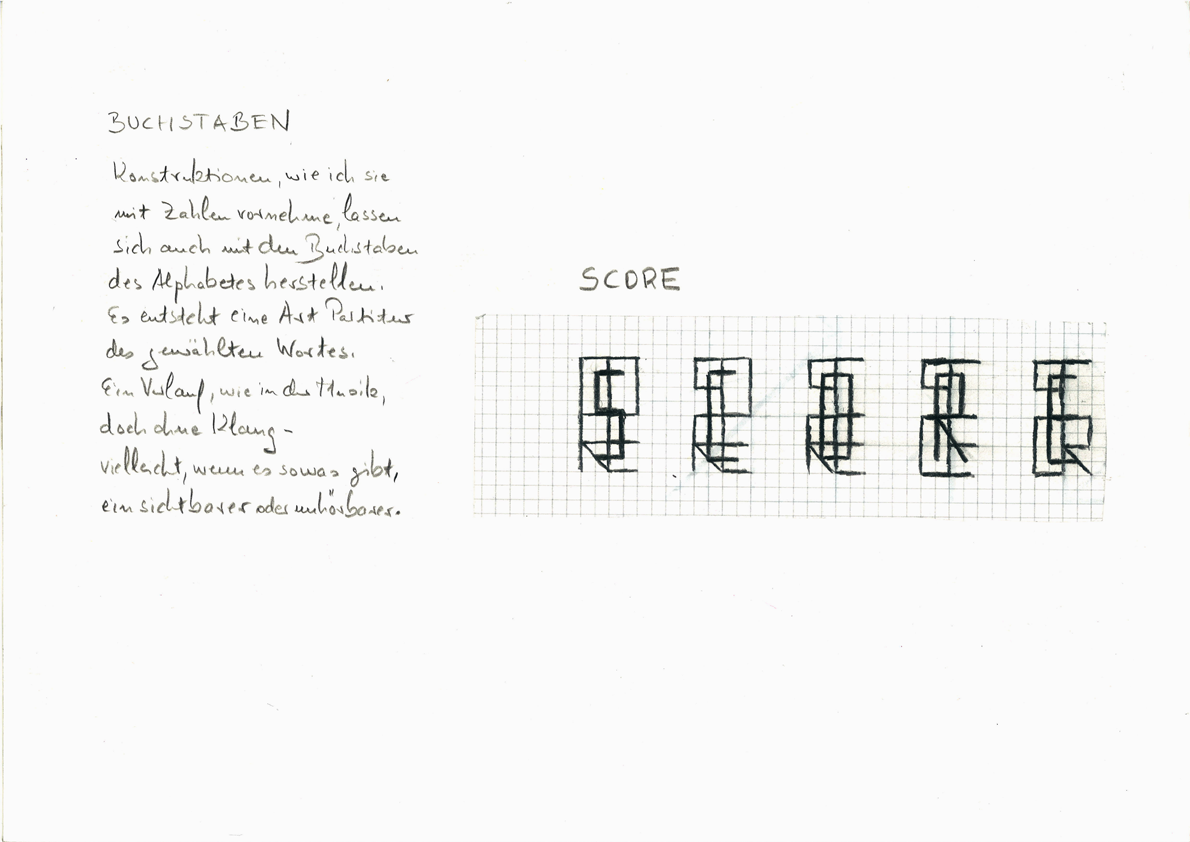 BUCHSTABEN
Konstruktionen, wie ich sie
mit Zahlen vornehme, lassen
sich auch mit den Buchstaben
des Alphabetes herstellen.
Es entsteht eine Art Partitur
des gewählten Wortes.
Ein Verlauf, wie in der Musik,
doch ohne Klang -
vielleicht, wenn es sowas gibt,
ein sichtbarer oder unhörbarer.
SCORE